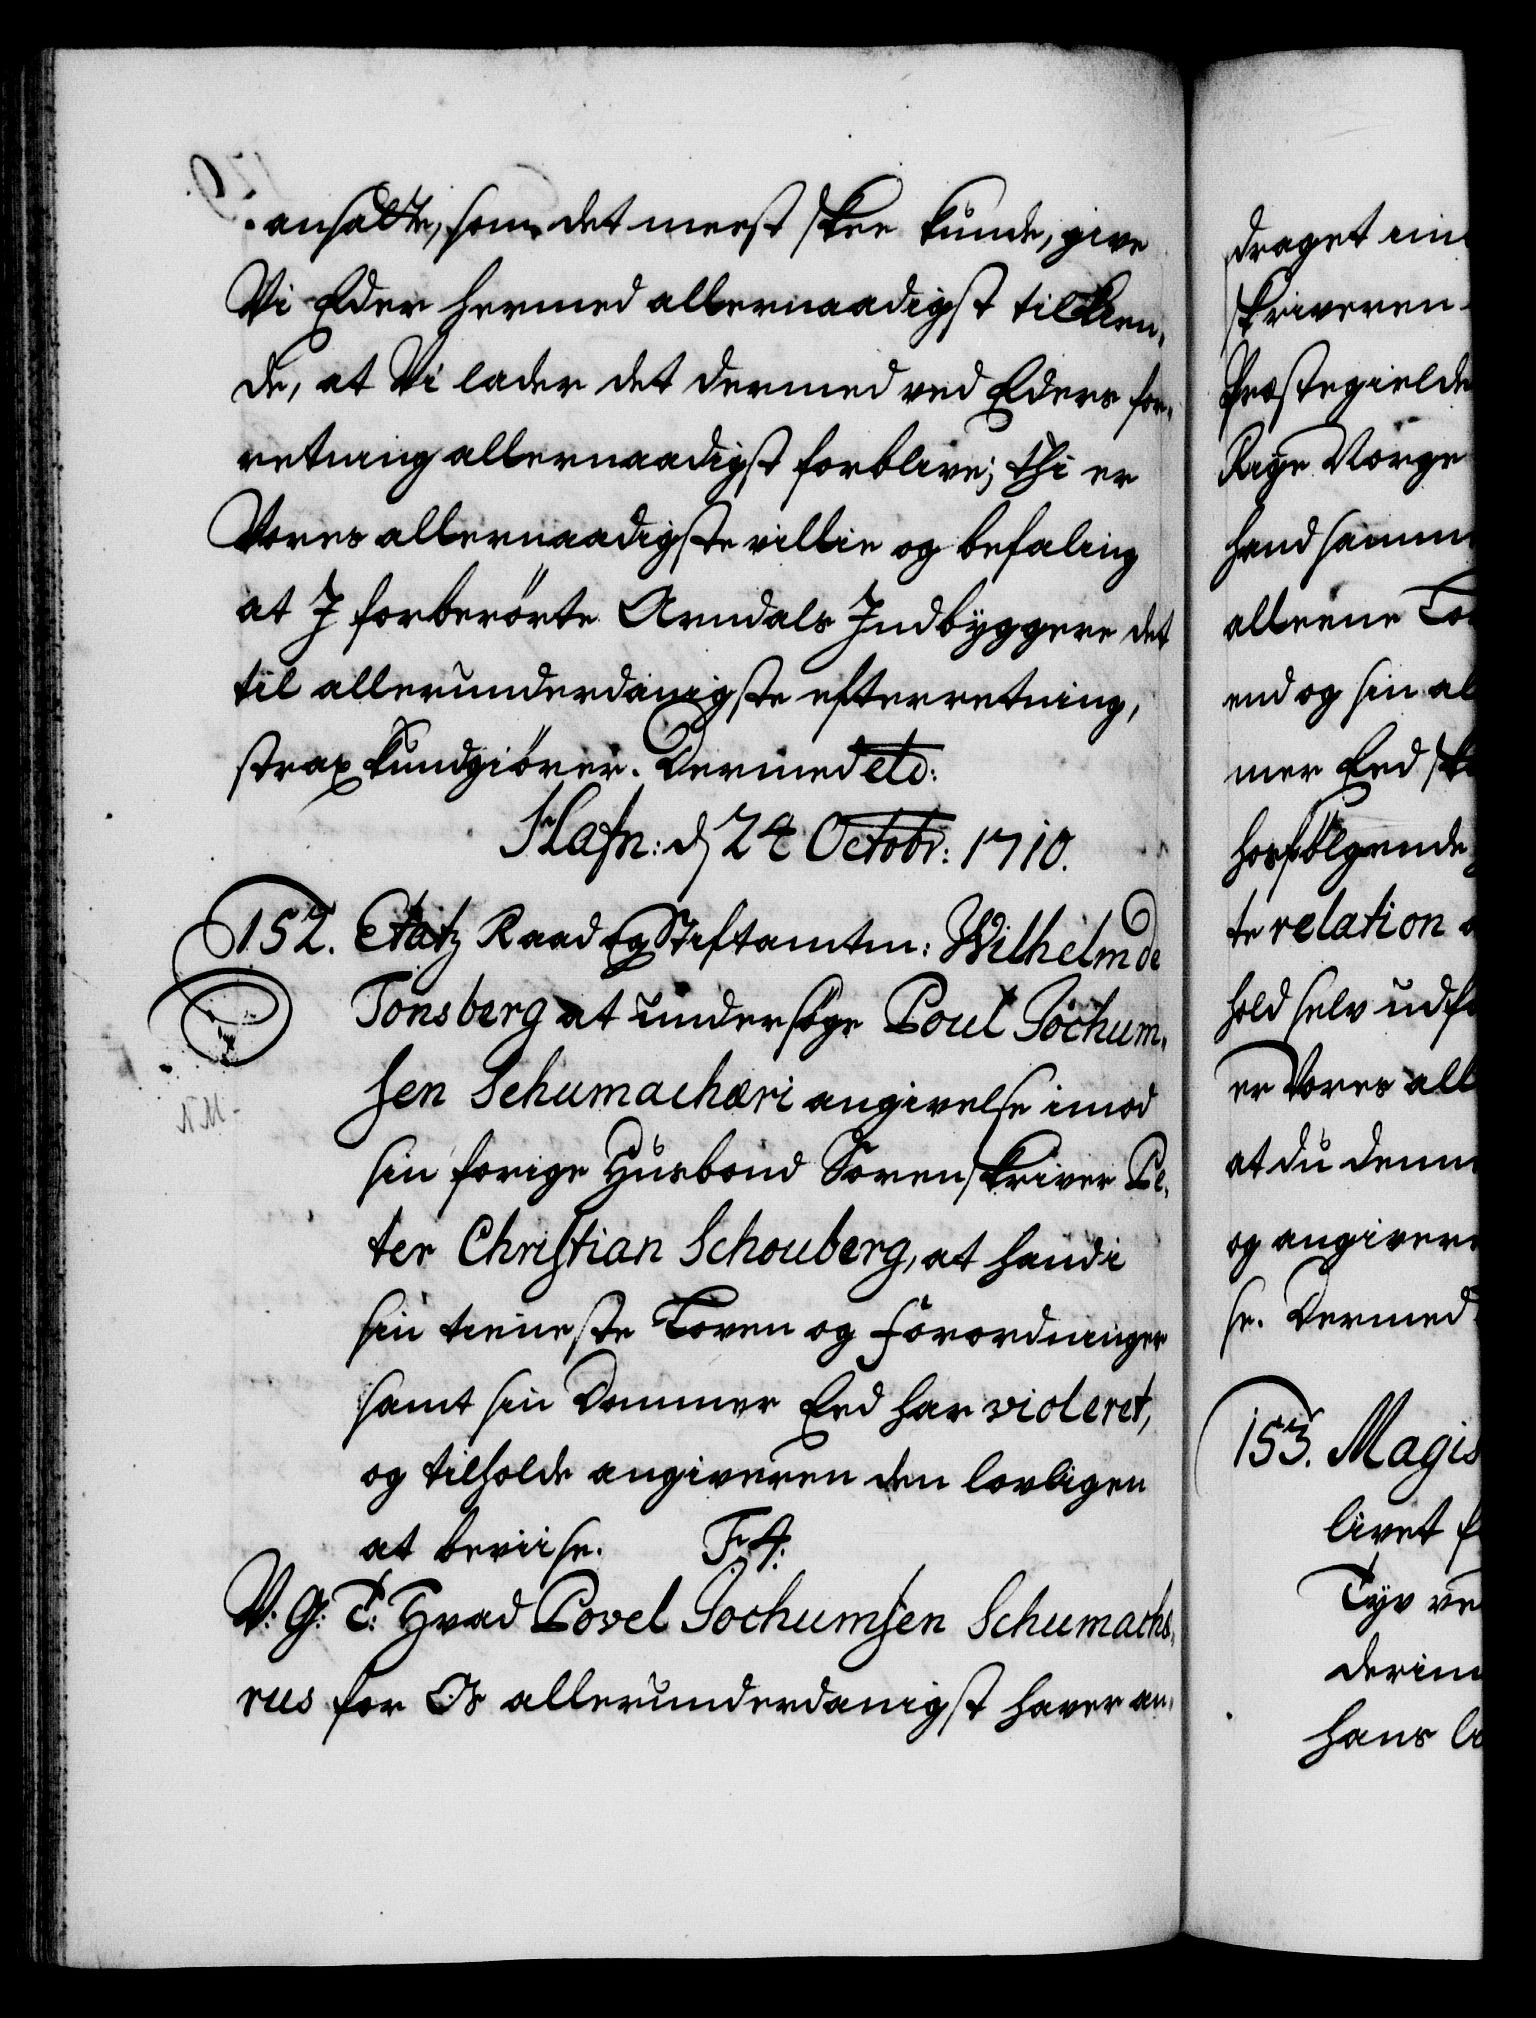 anholte, som det meest skee kunde, give
Vi Eder hermed allernaadigst tilkien-
de, at Vi lader det dermed ved Eders for-
retning allernaadigst forblive; thi er
Vores allernaadigste villie og befaling
at I forberörte Arndals Indbyggere det
til allerunderdanigste efterretning,
strax kundgiörer. Dermed etc:
Hafn: d 24 Octobr: 1710.
152. Etatz Raad og Stiftamtm: Wilhelm de
Tonsberg at undersöge Poul Jochum-
sen Schumachæri angivelse imod
sin forige Husbond Sorenskriver Pe-
ter Christian Schouberg, at hand i
sin tieneste Loven og Forordninger
samt sin Dommer Eed har violeret,
og tilholde angiveren den lovligen
at beviise. F 4:
V: G: T: Hvad Povel Jochumsen Schumachæ-
rus for Os allerunderdanigst haver an-
N.M-
draget im
skriveren
Præstegielde
Rige Norge
hand samme
alleene Lo
end og sin al
mer Eed sk
hosfölgende
te relation
hold selv udf
er Vores all
at du denne
og angivere
se. Dermed
153. Magis
livet f
Tyv ve
derim
hans l